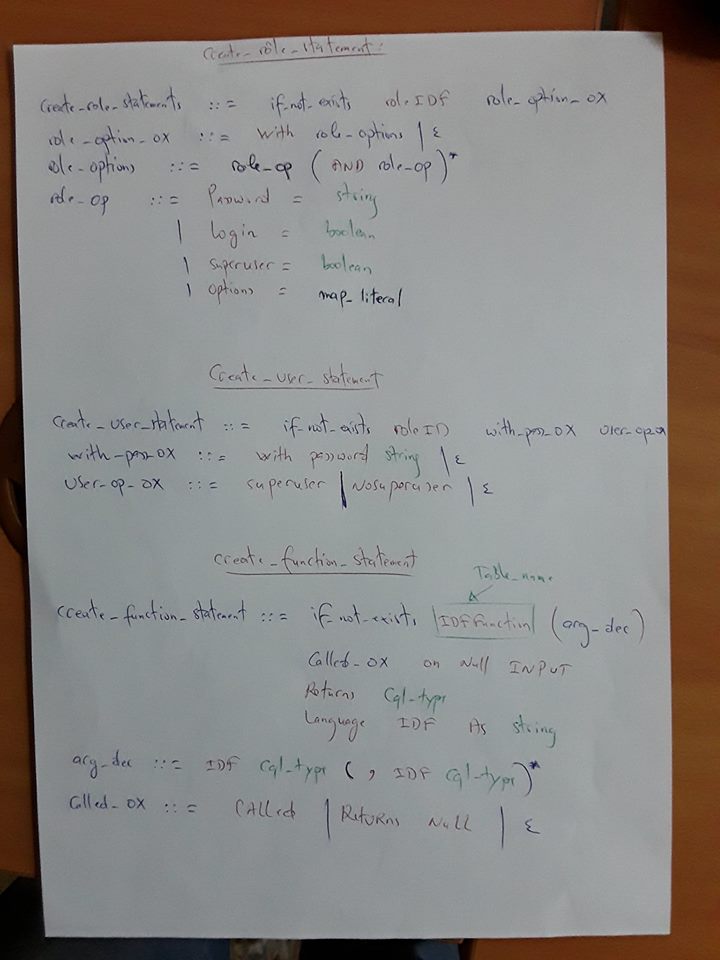 Create_rôle_statement:
Create_role_statements ::= if_not_exists role IDF role_option_ox
role_option_ox ::= with role_options | ε
role_options ::= role_op (AND role_op)*
role_op ::= Password = string
| login = boolean
| superuser = boolean
| options = map_literal
Create_user_statement
Create_user_statement ::= if_not_exists role ID with_pass_ox user_op_ox
with_pass_ox ::= with password string | ε
User_op_ox ::= superuser | Nosuperuser | ε
Create_function_statement
Table_name
Create_function_statement ::= if_not_exists IDF Function (arg_dec)
Called_ox on Null INPUT
Returns Cql_type
Language IDF As string
arg_dec ::= IDF Cql_type (, IDF Cql_type)*
Called_ox ::= CAlled | Returns Null | ε